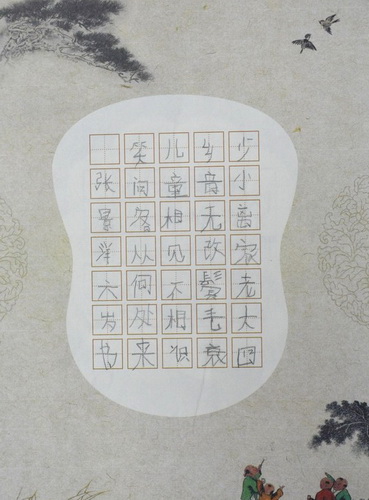 少小离家老大回
乡音无改鬓毛衰
儿童相见不相识
笑问客从何处来
张景洋六岁书